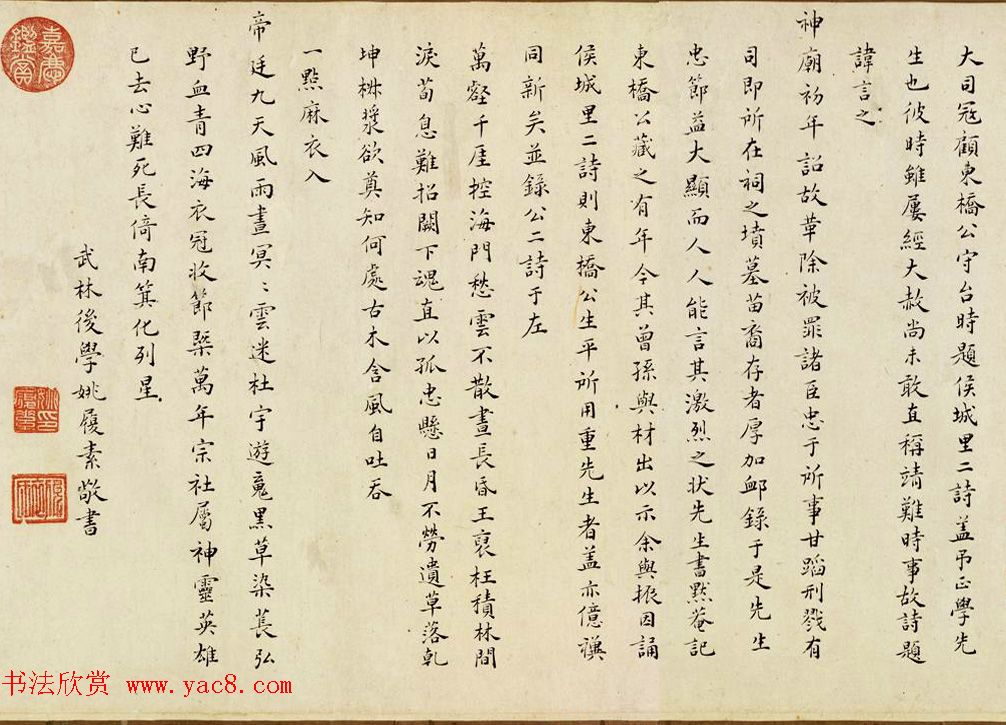 大司冦顧東橋公守台時題侯城里二詩盖弔正學先
生也彼時雖屢經大赦尚未敢直稱靖難時事故詩題
諱言之
神廟初年詔故革除被罪諸臣忠于所事甘蹈刑戮有
司即所在祠之墳墓苗裔存者厚加衈錄于是先生
忠節益大顯而人人能言其激烈之狀先生書默菴記
東橋公藏之有年今其曾孫與材出以示余與振因誦
侯城里二詩則東橋公生平所用重先生者盖亦億禩
同新矣並錄公二詩于左
萬壑千厓控海門愁雲不散晝長昏王裒枉積林間
淚荀息難招闕下魂直以孤忠懸日月不勞遺草落乾
坤椒漿欲奠知何處古木含風自吐吞
一點麻衣入
帝廷九天風雨晝冥〻雲迷杜宇遊䰟黑草染萇弘
野血青四海衣冠收節槩萬年宗社屬神靈英雄
已去心難死長倚南箕化列星
武林後學姚履素敬書
嘉慶鑑賞
书法欣赏 www.yac8.com